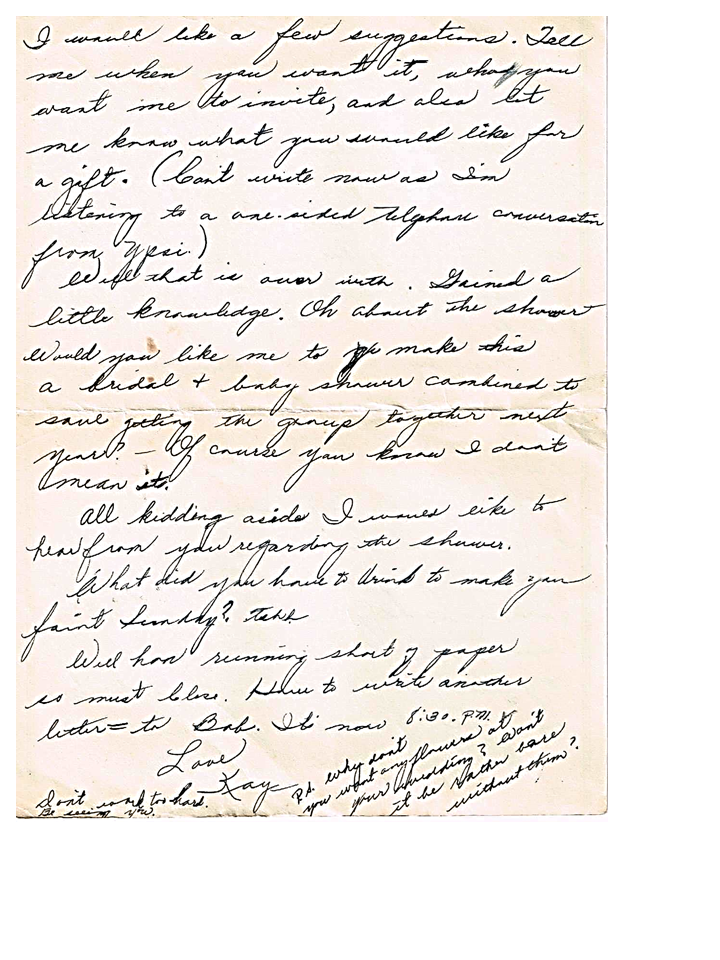 I would like a few suggestions. Tell
me when you want it, who you
want me to invite, and also let
me know what you would like for
a gift. (Can't write now as I'm
listening to a one-sided telephone conversation
from Ypsi.)
Well that is over with. Gained a
little knowledge. Oh about the shower
Would you like me to make this
a bridal + baby shower combined to
save getting the group together next
year? - Of course you know I don't
mean it.
All kidding aside I would like to
hear from you regarding the shower.
What did you have to drink to make you
faint Sunday? Tshk
Well hon running short of paper
so must close. Have to write another
letter = to Bob. It's now 8:30. P.M.
Love
Kay
Don't work too hard.
Be seein you.
P.S. why don't
you want any flowers at
your wedding? Won't
it be rather bare
without them?